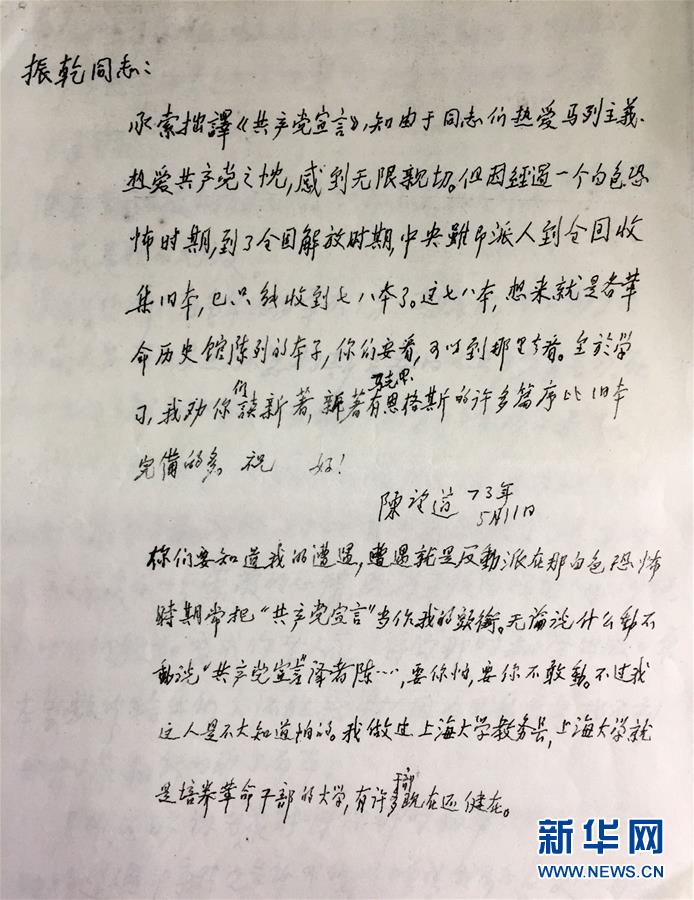 振乾同志：
承索拙譯《共产党宣言》，知由于同志们热爱马列主义、
热爱共产党之忱，感到无限親切。但因經过一个白色恐
怖时期，到了全国解放时期，中央雖即派人到全国收
集旧本，已只能收到七八本了。这七八本，想来就是各革
命历史馆陈列的本子，你们要看，可以到那里去看。至於学
习，我劝你们讀新著，新著有马克思、恩格斯的许多篇序比旧本
完備的多。祝 好！
陳望道 73年
5月11日
你们要知道我的遭遇，遭遇就是反動派在那白色恐怖
時期常把“共产党宣言”当作我的頭銜。无论说什么動不
動说“共产党宣言”译者陈……，要你怕，要你不敢動。不过我
这人是不大知道怕的。我做过上海大学教务长，上海大学就
是培养革命干部的大学，有许多干部现在还健在。
新华网
WWW.NEWS.CN